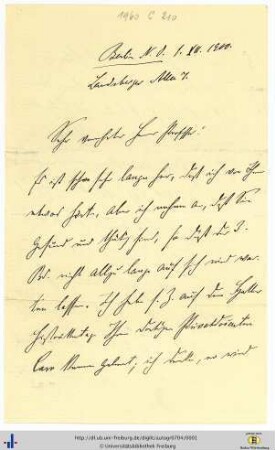 1960 C 210
Berlin N.O. 1. XII. 1900.
Landsberger Allee 7.
Sehr verehrter Herr Professor!
Es ist schon sehr lange her, daß ich von Ihnen
etwas hörte. Aber ich nehme an, daß Sie
gesund und thätig sind, so daß der 3.
Bd. nicht allzu lange auf sich wird war-
ten lassen. Ich habe s. Z. auf dem
Ihren dortigen Privatdozenten
kennen gelernt; ich denke, er wird
http://dl.ub.uni-freiburg.de/diglit/autogr0704/0001
© Universitätsbibliothek Freiburg